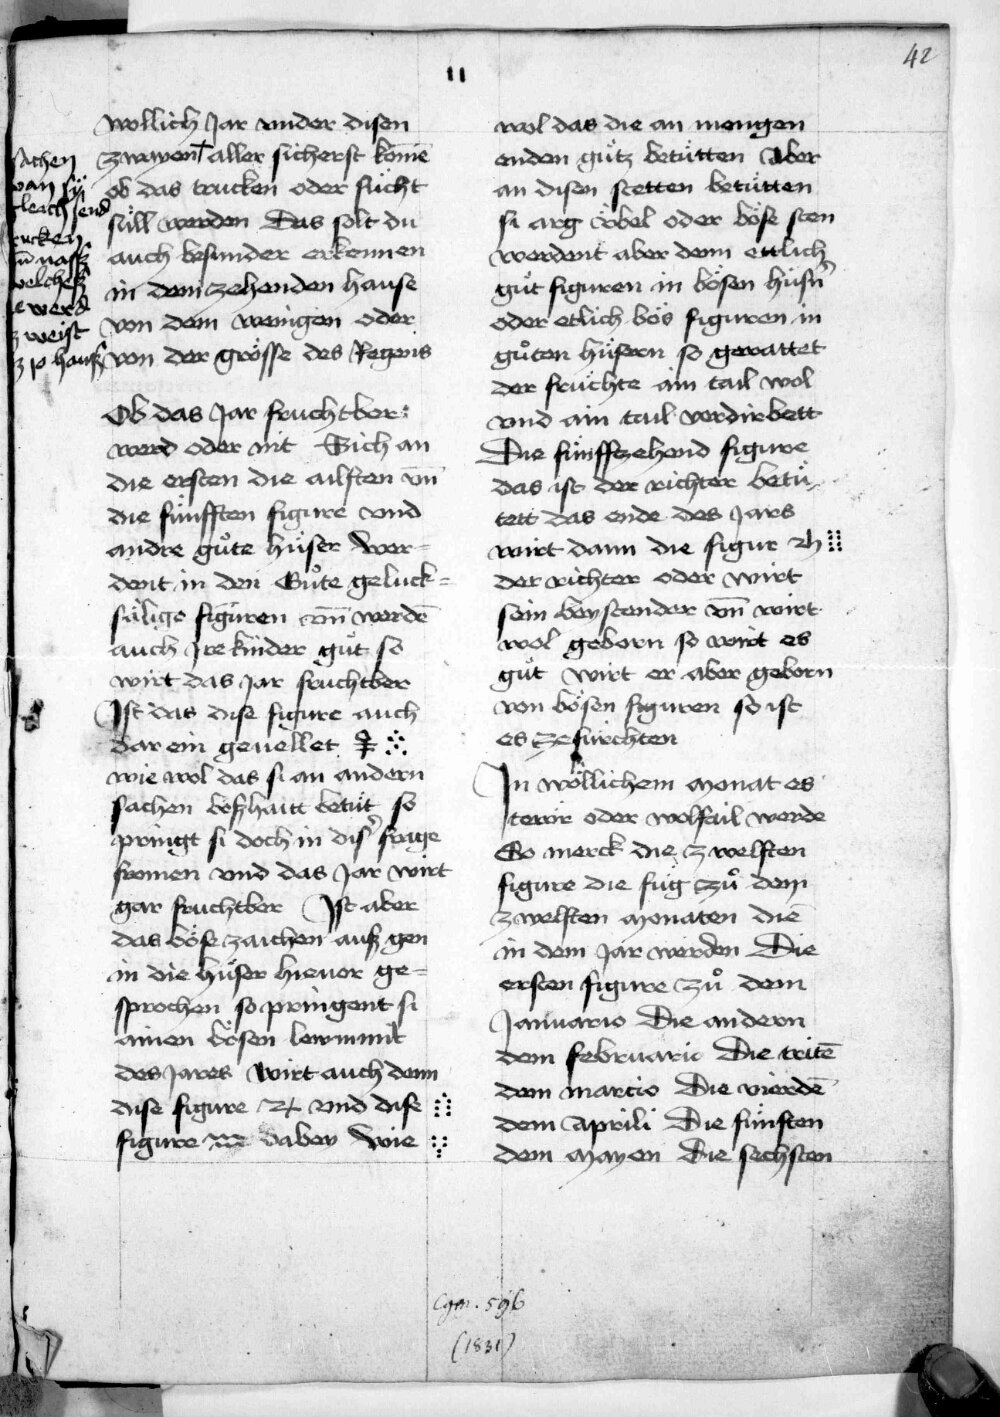 42
11
wollich Jar vnder disen
zwayen† aller sicherst komē
ob das trucken oder fücht
süll werden Das solt du
auch besunder erkennen
in dem zehenden hause
von dem wenigen oder
von der grösse des Regens
sachen
van sy
gleich send
trucken
vn̄ nass
welches
werd
weist
10 hauss
Ob das Jar fruchtber
werd oder nit Sich an
die ersten die ailften vn̄
die fünfften figure vnd
andre gůte hüser Wer=
dent in den Gůte geluck=
sälige figuren vn̄ werdē
auch Jre kinder gůt so
wirt das Jar fruchtber
Ist das dise figure auch
dar ein geuellet
wie wol das si an andern
sachen boßhaitt betüt so
pringt si doch in dis' frage
fromen vnd das Jar wirt
gar fruchtber Ist aber
das böse zaichen auß gen
in die hüser hieuor ge=
sprochen so pringent si
ainen bösen lewmunt
des Jares Wirt auch denn
dise figure ♃ vnd dise
figure ♒ dabey Wie
wol das die an mengen
enden gůtz betütten Aber
an disen stetten betütten
si arg vbel oder böse sten
werdent aber denn ettlich
gůt figuren in bösen hüsn'
oder etlich bös figuren in
gůten hüsern so gerattet
der früchte ain tail wol
vnd ain tail verdirbett
Die fünffzehend figure
das ist der richter betü=
tett das ende des Jars
wirt dann die figur ♄
der richter oder wirt
sein beystender vn̄ wirt
wol geborn so wirt es
gůt wirt er aber geborn
von bösen figuren so ist
es ze fürchten
In wöllichem monat es
tewr oder wolfail werde
So merck die zwelften
figure die füg zů dem
zwelften monaten die
in dem Jar werden Die
ersten figure zů dem
Januario Die andern
dem februario Die tritē
dem marcio Die vierdē
dem Aprili Die fünften
dem mayen Die sechsten
Cgm. 596
(1831)